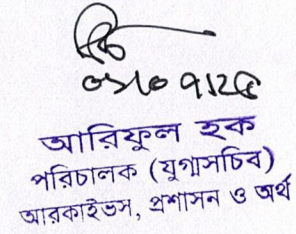 ০১/০৭/২৫
আরিফুল হক
পরিচালক (যুগ্মসচিব)
আরকাইভস, প্রশাসন ও অর্থ